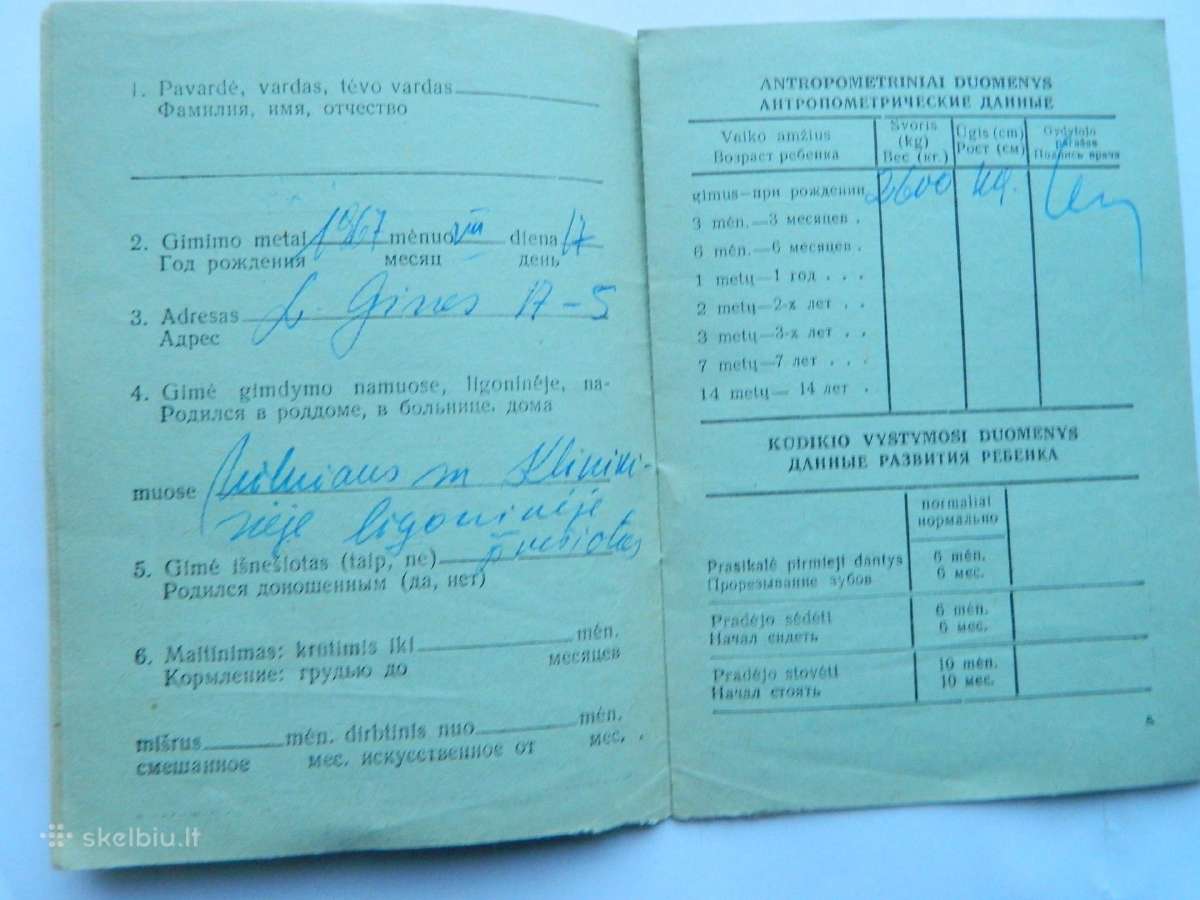 1. Pavardė, vardas, tėvo vardas
Фамилия, имя, отчество
2. Gimimo metai 1967 mėnuo VII diena 17
Год рождения месяц день
3. Adresas L. Giros 17-5
Адрес
4. Gimė gimdymo namuose, ligoninėje, na-
Родился в роддоме, в больнице, дома
muose Vilniaus m Kliniki-
nėje ligoninėje
5. Gimė išnešiotas (taip, ne)
Родился доношенным (да, нет)
6. Maitinimas: krūtimis iki mėn.
Кормление: грудью до месяцев
mišrus mėn. dirbtinis nuo mėn.
смешанное мес. искусственное от мес.
skelbiu.lt
ANTROPOMETRINIAI DUOMENYS
АНТРОПОМЕТРИЧЕСКИЕ ДАННЫЕ
Vaiko amžius
Возраст ребенка
Svoris
(kg)
Вес (кг.)
Ūgis (cm)
Рост (см)
Gydytojo
parašas
Подпись врача
gimus—при рождении 2600
3 mėn.—3 месяцев .
6 mėn.—6 месяцев .
1 metų—1 год . . .
2 metų—2-х лет . .
3 metų—3-х лет . .
7 metų—7 лет . . .
14 metų—14 лет .
KŪDIKIO VYSTYMOSI DUOMENYS
ДАННЫЕ РАЗВИТИЯ РЕБЕНКА
normaliai
нормально
Prasikalė pirmieji dantys 6 mėn.
Прорезывание зубов 6 мес.
Pradėjo sėdėti 6 mėn.
Начал сидеть 6 мес.
Pradėjo stovėti 10 mėn.
Начал стоять 10 мес.